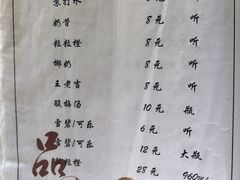 苏打水 8元 听
奶昔 8元 听
粒粒橙 8元 听
椰奶 8元 听
王老吉 8元 听
酸梅汤 10元 瓶
雪碧/可乐 6元 听
雪碧/可乐 12元 大瓶
粒橙 28元 960m
品